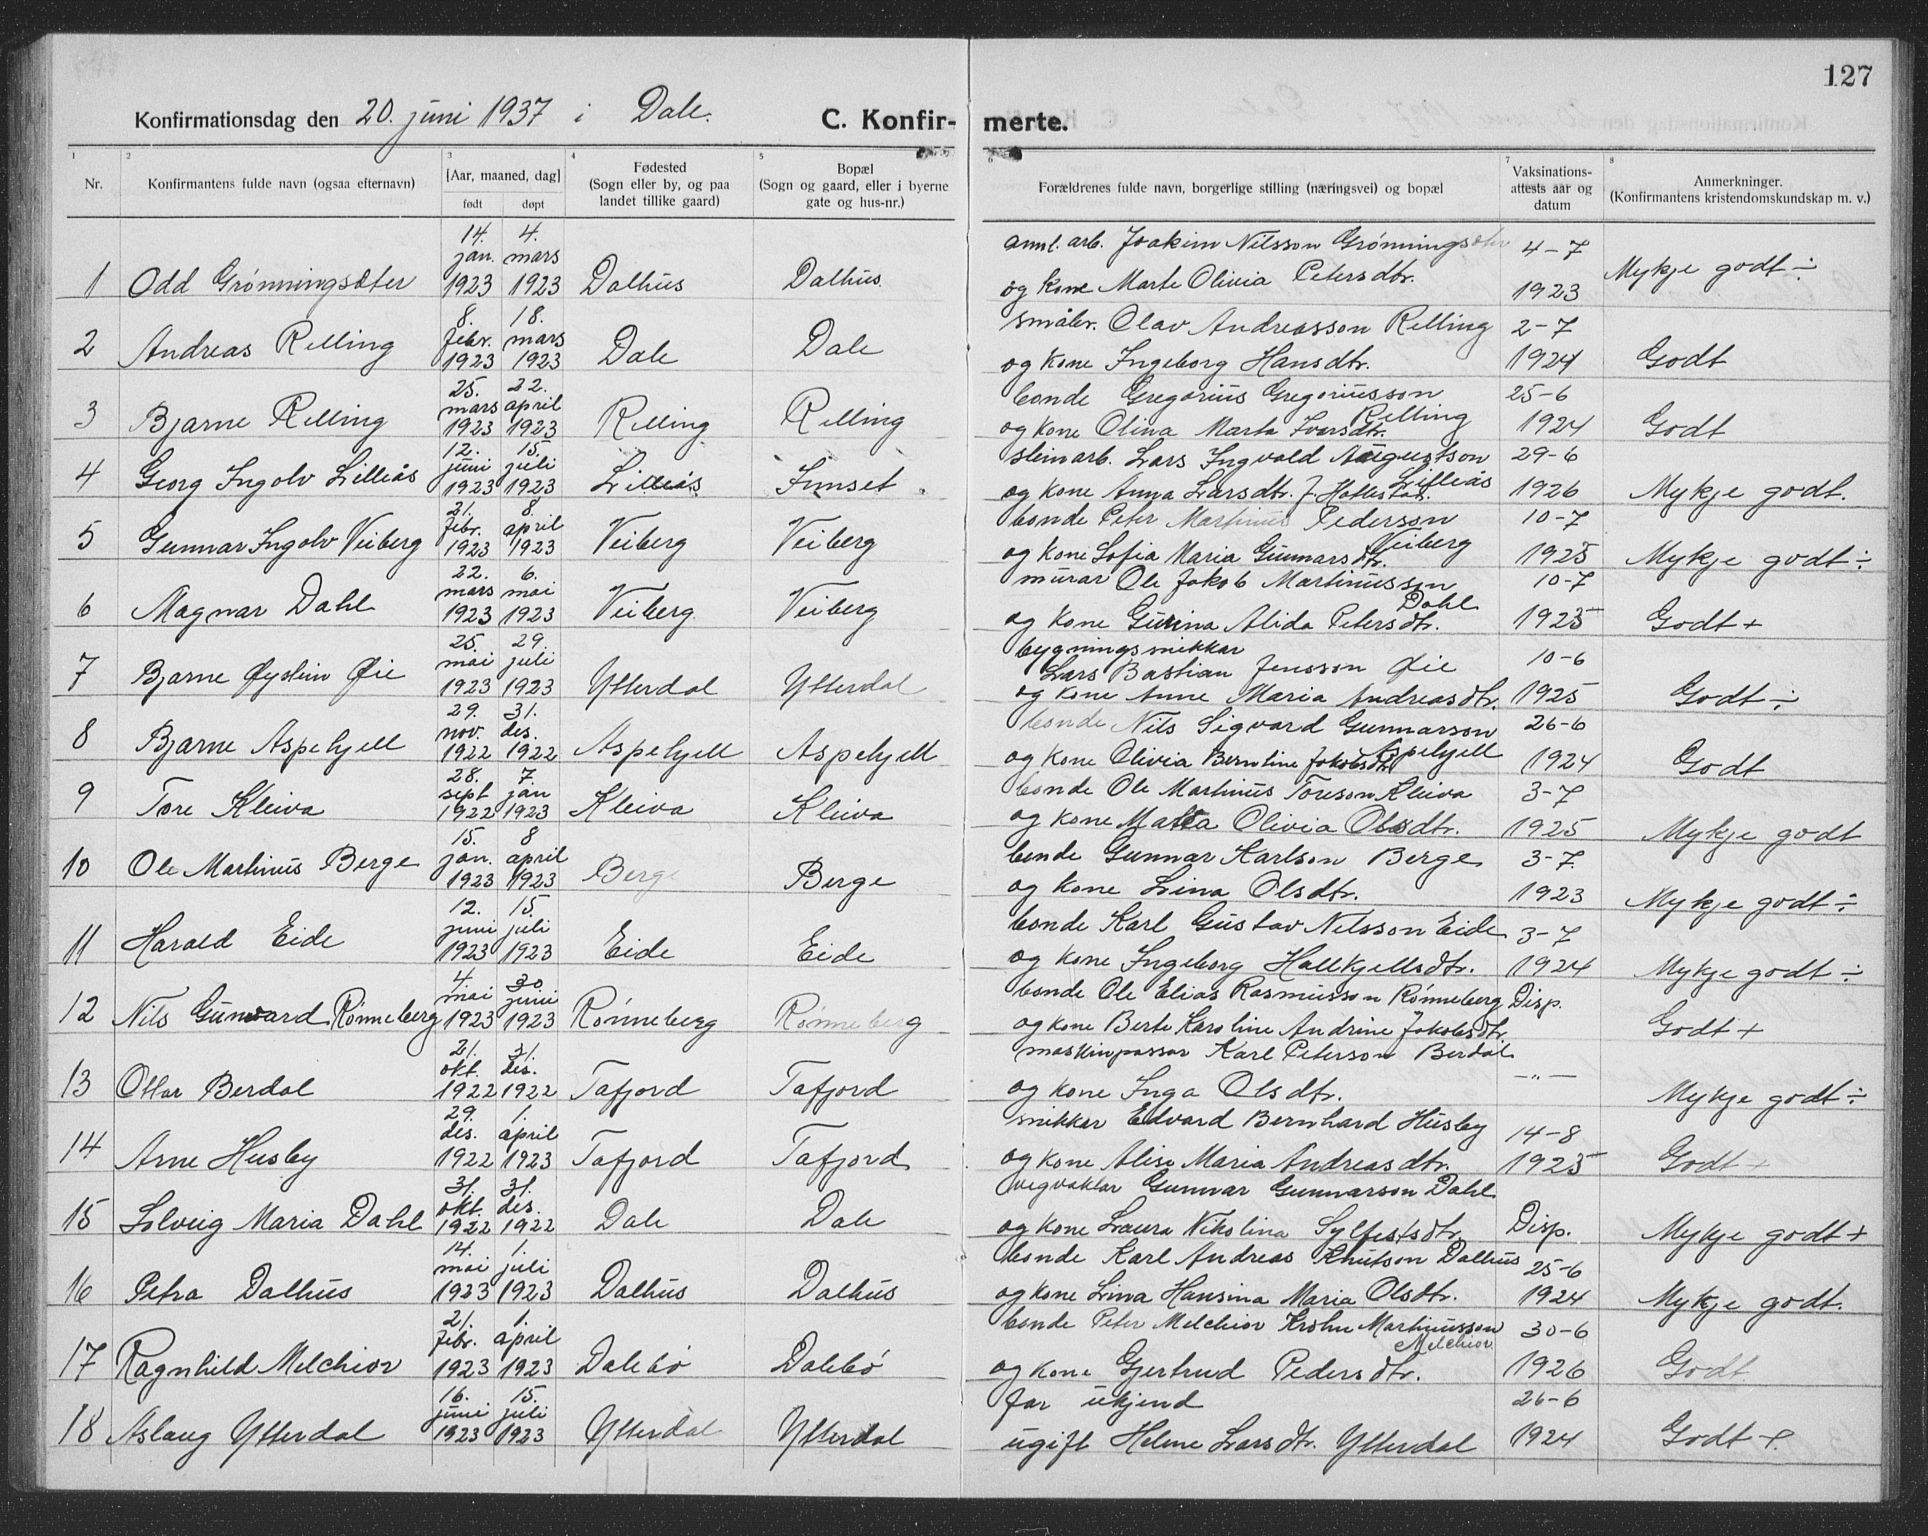 127
Konfirmationsdag den 20. juni 1937 i Dale. C. Konfir- merte.
1 2 3 4 5 6 7 8
Nr. Konfirmantens fulde navn (ogsaa efternavn) [Aar, maaned, dag] født døpt Fødested (Sogn eller by, og paa landet tillike gaard) Bopæl (Sogn og gaard, eller i byerne gate og hus-nr.) Forældrenes fulde navn, borgerlige stilling (næringsvei) og bopæl Vaksinations-attests aar og datum Anmerkninger. (Konfirmantens kristendomskundskap m. v.)
1 Odd Grønningsæter 14. jan. 1923 4. mars 1923 Dalhus Dalhus anl. arb. Joakim Nilsson Grønningsæter
og kone Marte Olivia Petersdtr. 4-7 1923 Mykje godt ÷
2 Andreas Relling 8. febr. 1923 18. mars 1923 Dale Dale småbr. Olav Andreasson Relling
og kone Ingeborg Hansdtr. 2-7 1924 Godt
3 Bjarne Relling 25. mars 1923 22. april 1923 Relling Relling bonde Gregorius Gregoriusson Relling
og kone Olina Marta Ivarsdtr. 25-6 1924 Godt
4 Georg Ingolv Lilleås 12. juni 1923 15. juli 1923 Lilleås Simset steinarb. Lars Ingvald Augustson Lilleås
og kone Anna Larsdtr. f. 29-6 1926 Mykje godt.
5 Gunnar Ingolv Veiberg 21. febr. 1923 8. april 1923 Veiberg Veiberg bonde Peter Martinus Pederson Veiberg
og kone Sofia Maria Gunnarsdtr. 10-7 1925 Mykje godt ÷
6 Magnar Dahl 22. mars 1923 6. mai 1923 Veiberg Veiberg murar Ole Jakob Martinusson Dahl
og kone Gurina Alida Petersdtr. 10-7 1925 Godt +
7 Bjarne Øystein Øie 25. mai 1923 29. juli 1923 Ytterdal Ytterdal bygningssnikkar
Lars Bastian Jensson Øie
og kone Anne Maria Andreasdtr. 10-6 1925 Godt ÷
8 Bjarne Aspehjell 29. nov. 1922 31. des. 1922 Aspehjell Aspehjell bonde Nils Sigvard Gunnarson Aspehjell
og kone Olivia Berntine Jakobsdtr. 26-6 1924 Godt
9 Tore Kleiva 28. sept 1922 7. jan 1923 Kleiva Kleiva bonde Ole Martinus Toreson Kleiva
og kone Marta Olivia Olsdtr. 3-7 1925 Mykje godt
10 Ole Martinus Berge 15. jan. 1923 8 april 1923 Berge Berge bonde Gunnar Karlson Berge
og kone Lina Olsdtr. 3-7. 1923 Mykje godt ÷
11 Harald Eide 12. juni 1923 15. juli 1923 Eide Eide bonde Karl Gustav Nilsson Eide
og kone Ingeborg Hallkjellsdtr. 3-7 1924 Mykje godt ÷
12 Nils Gunvard Rønneberg 4. mai 1923 30 juni 1923 Rønneberg Rønneberg bonde Ole Elias Rasmusson Rønneberg
og kone Berte Karoline Andrine Jakobsdtr. Disp. Godt +
13 Ottar Berdal 21. okt. 1922 31. des. 1922 Tafjord Tafjord maskinpassar Karl Peterson Berdal
og kone Inga Olsdtr. —"— Mykje godt ÷
14 Arne Husby 29. des. 1922 1. april 1923 Tafjord Tafjord snikkar Edvard Bernhard Husby
og kone Alise Maria Andreasdtr. 14-8 1925 Godt +
15 Solveig Maria Dahl 31. okt. 1922 31. des. 1922 Dale Dale vegvaktar Gunnar Gunnarson Dahl
og kone Laura Nikolina Sylfestsdtr. Disp. Mykje godt +
16 Petra Dalhus 14. mai 1923 1. juli 1923 Dalhus Dalhus bonde Karl Andreas Knutson Dalhus
og kone Lina Hansina Maria Olsdtr. 25-6 1924 Mykje godt.
17 Ragnhild Melchior 21. febr. 1923 1. april 1923 Dalebø Dalebø bonde Peter Melchior Krohn Martinusson Melchior
og kone Gjertrud Pedersdtr. 30-6 1926 Godt
18 Aslaug Ytterdal 16. juni 1923 15. juli 1923 Ytterdal Ytterdal far ukjend
ugift Helene Larsdtr. Ytterdal 26-6 1924 Godt +